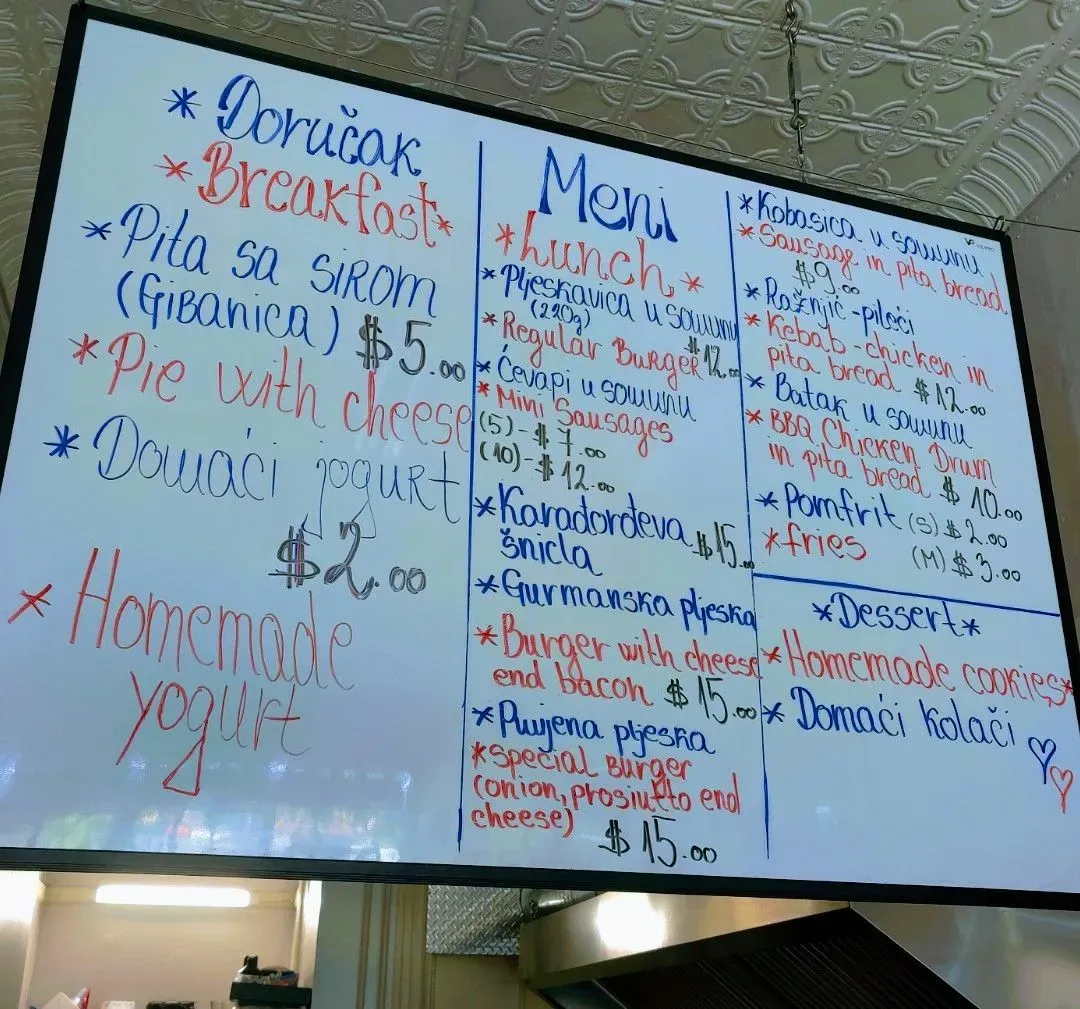 * Doručak
* Breakfast *
* Pita sa sirom
(Gibanica) $5.00
* Pie with cheese
* Domaći jogurt
$2.00
* Homemade
yogurt
Meni
* Lunch *
* Pljeskavica u somunu
(220g) $12.00
* Regular Burger
* Ćevapi u somunu
* Mini Sausages
(5) - $7.00
(10) - $12.00
* Karađorđeva $15.00
šnicla
* Gurmanska pljeska
* Burger with cheese
end bacon $15.00
* Punjena pljeska
* Special Burger
(onion, prosiutto end
cheese)
$15.00
* Kobasica u somunu
* Sausage in pita bread
$9.00
* Ražnjić - pileći
* Kebab - chicken in
pita bread $12.00
* Batak u somunu
* BBQ Chicken Drum
in pita bread $10.00
* Pomfrit (S) $2.00
* fries (M) $3.00
* Dessert *
* Homemade cookies *
* Domaći kolači